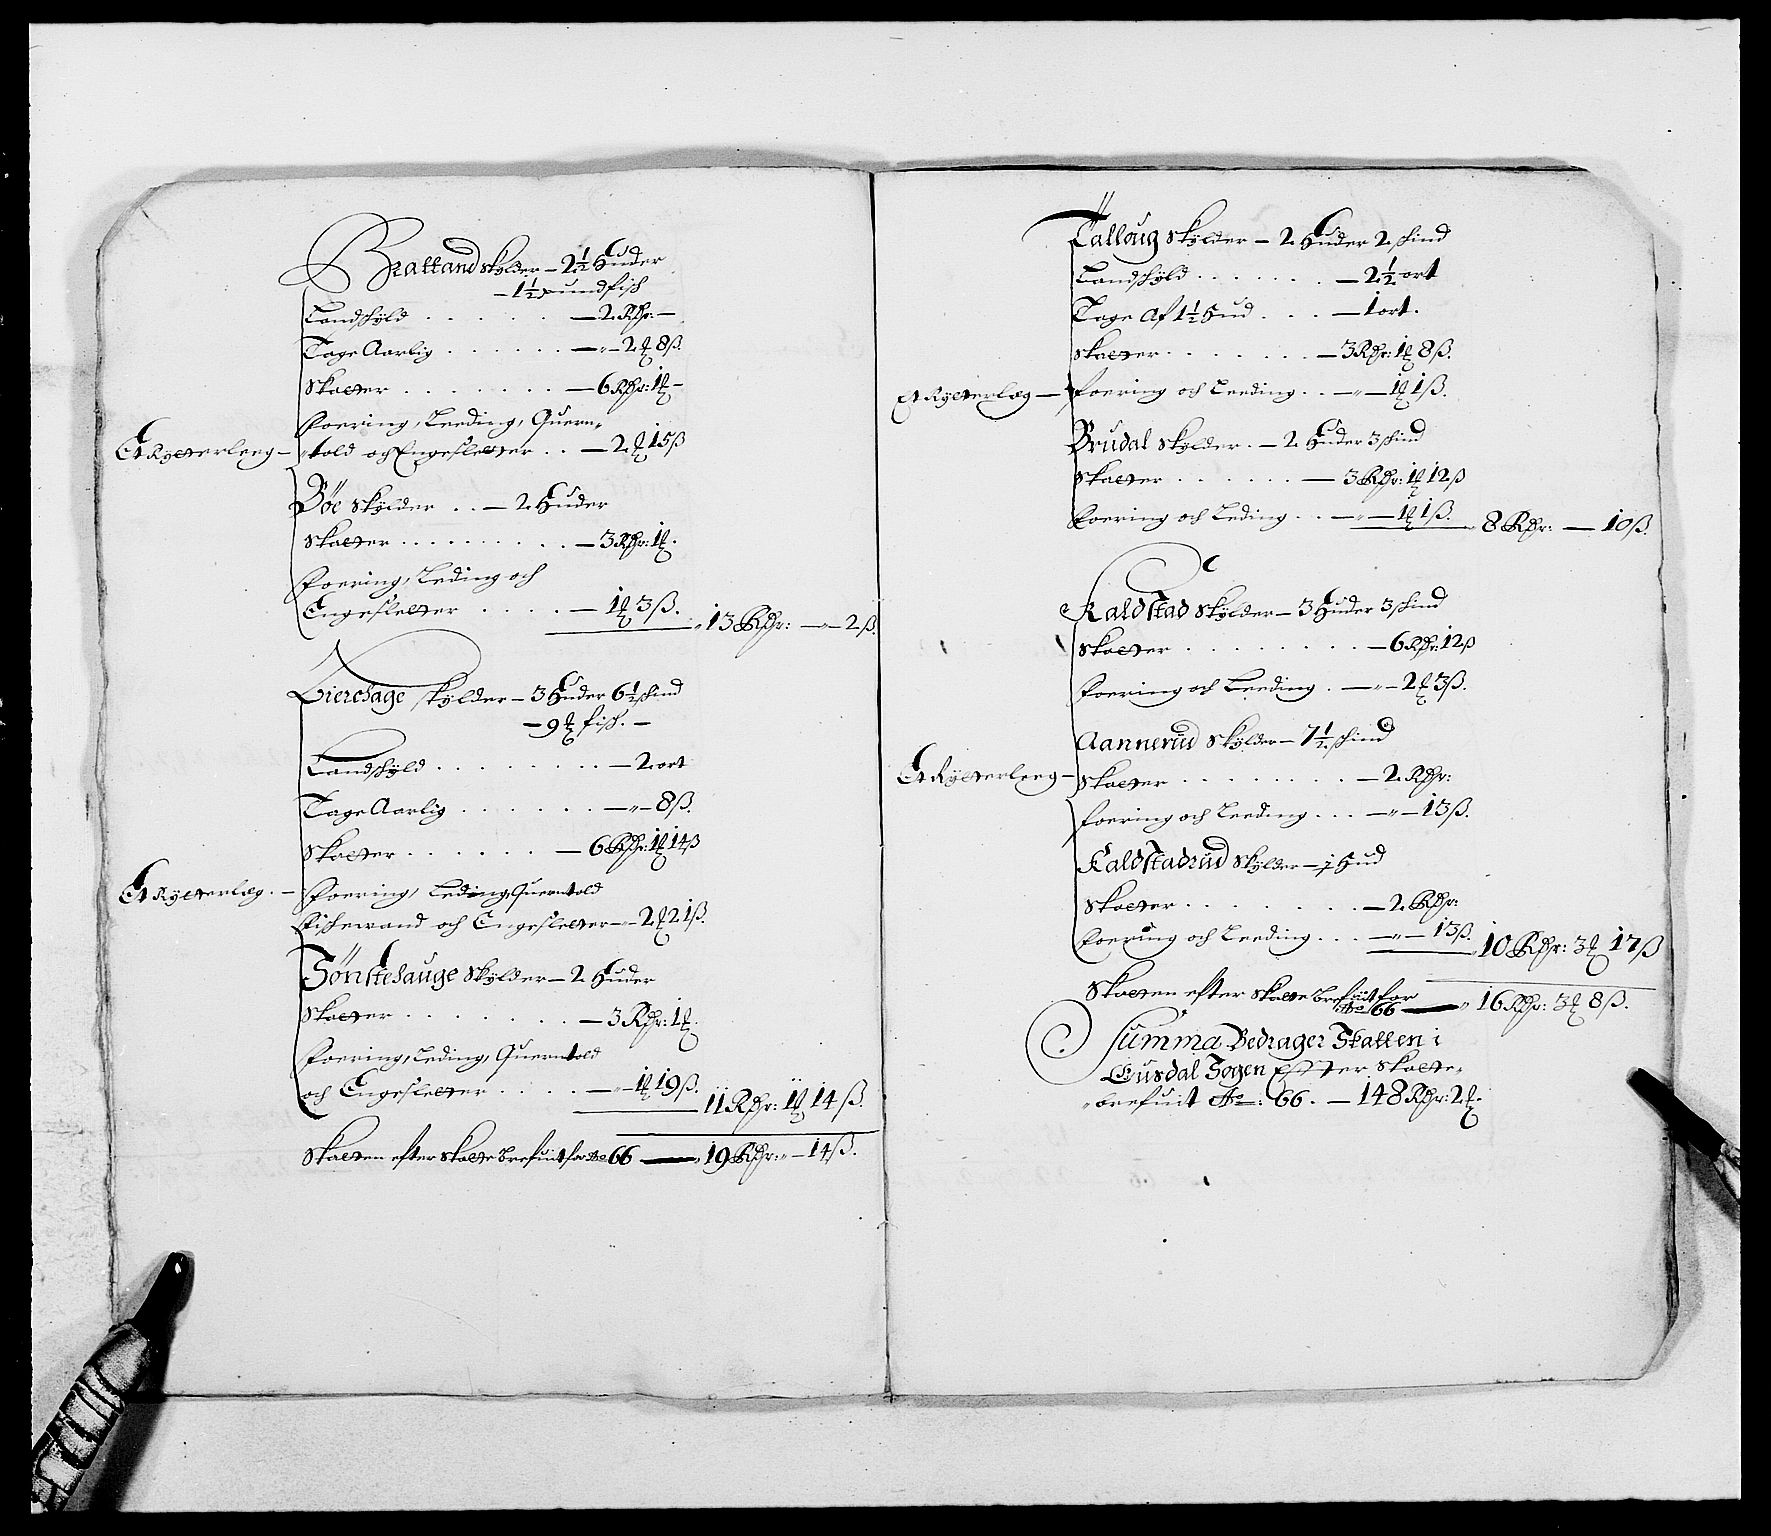 Brattand skylder – 2½ Huder
– 1½ pund fisk
Landskyld . . . . . – 2 Rdr: –
Tage Aarlig . . . . . . – „ – 2 ℔ 8 ß.
Skatter . . . . . . . – 6 Rdr: 1 ℔ –
Foering, Leeding, Quern„
Et Rytterleeg – „told och Engesletter . . – 2 ℔ 15 ß
Bøe skylder . . – 2 Huder
Skatter . . . . . . . . . – 3 Rdr: 1 ℔.
Foering, Leding och
Engesletter . . . . – 1 ℔ 3 ß. „ 13 Rdr: – „ – 2 ß.
Lierehage skylder – 3 Huder 6½ skind
– 9 ℔ fisk. –
Landskyld . . . . . . . . – 2 ort
Tage Aarlig . . . . . . – „ – 8 ß.
Skatter . . . . . . – 6 Rdr: 1 ℔ 14 ß
Et Rytterlæg. – Foering, Leding, Querntold
Fischevand och Engesletter – „ – 2 ℔ 21 ß.
Sønstehauge skylder – 2 Huder
Skatter . . . . . . . – 3 Rdr: 1 ℔.
Foering, Leding, Querntold
och Engesletter . . . . – „ – 1 ℔ 19 ß. 11 Rdr: 1 ℔ 14 ß.
Skatten efter skattebrefuit for Ao 66 – „ 19 Rdr: „ – 14 ß.
Talloug skylder – 2 Huder 2 skind
Landskyld . . . . . . – 2½ ort
Tage Af 1½ Hud . . . – 1 ort.
Skatter . . . . . . . – 3 Rdr: 1 ℔ 8 ß.
Et Rytterlæg – Foering och Leeding . . – „ – 1 ℔ 1 ß.
Brudal skylder . – 2 Huder 3 skind
Skatter . . . . . . – 3 Rdr: 1 ℔ 12 ß
Foering och Leding . . – „ – 1 ℔ 1 ß. „ 8 Rdr: – 10 ß.
Kaldstad skylder – 3 Huder 3 skind
Skatter . . . . . . . . – 6 Rdr: 12 ß
Foering och Leeding . – „ – 2 ℔ 3 ß.
Aannerud skylder – 7½ skind
Et Rytterleeg – Skatter . . . . . . . – 2 Rdr:
Foering och Leeding . . . – „ – 13 ß.
Kaldstadrud skylder – 1 Hud
Skatter . . . . . . . – 2 Rdr:
Foering och Leeding . . . – „ – 13 ß. „ 10 Rdr: 3 ℔ 17 ß
Skatten efter skattebrefuit for
Ao 66 – „ 16 Rdr: 3 ℔ 8 ß.
Summa Bedrager Skatten i
Eusdal Sogen Effter Skatte„
„brefuit Ao: 66. – 148 Rdr: 2 ℔.